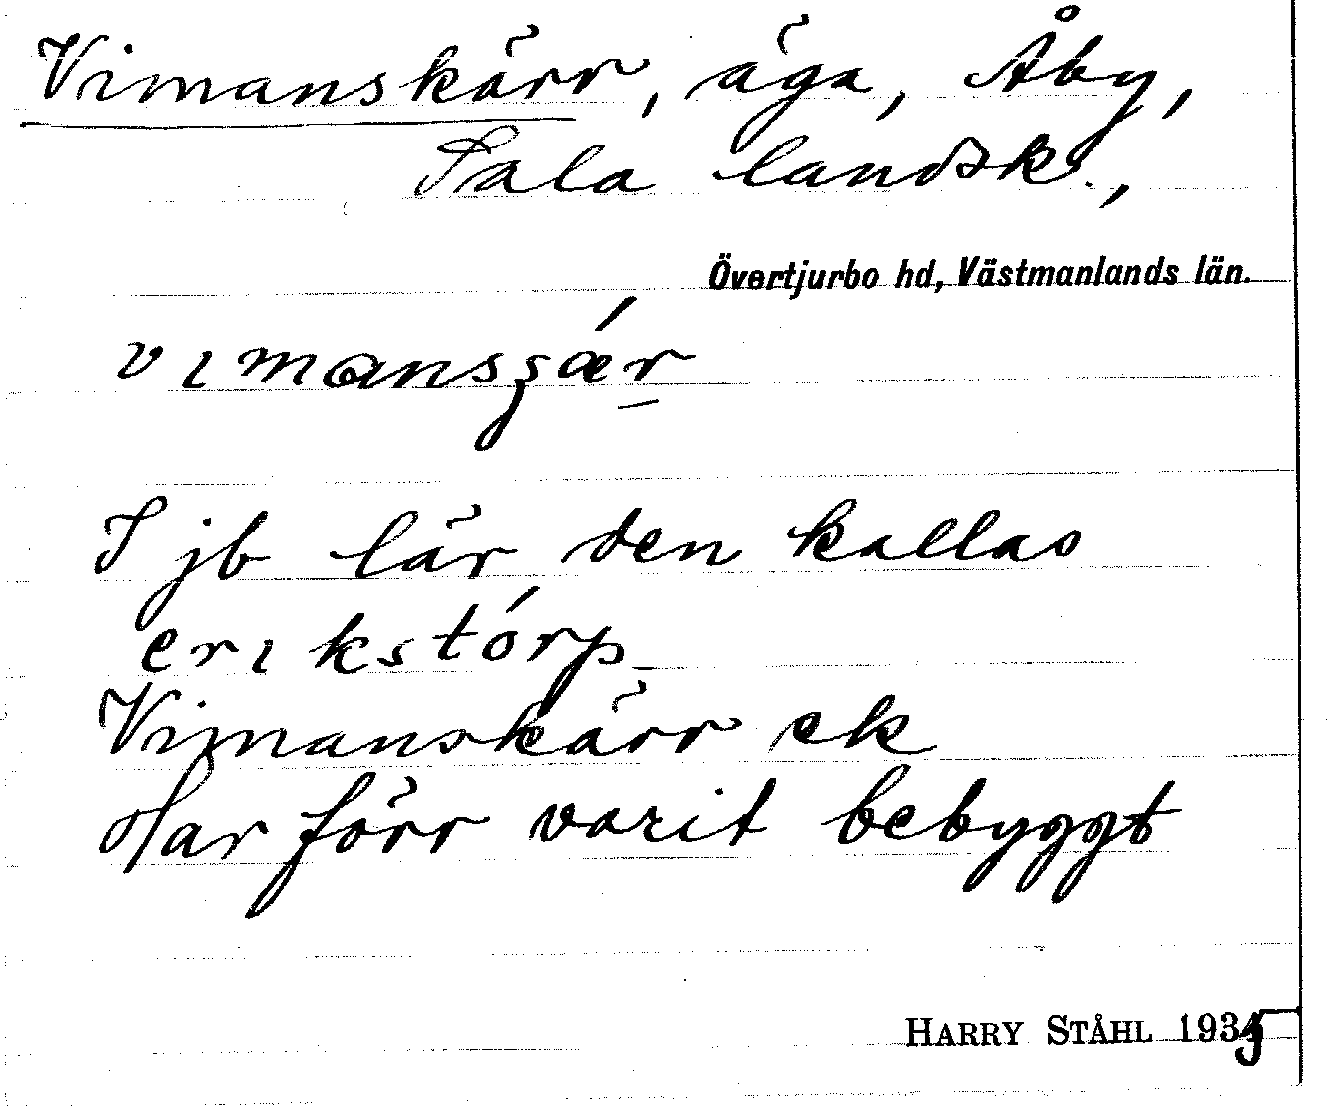 Vimanskärr, äga, Åby,
Sala landsk.,
Övertjurbo hd, Västmanlands län.
vımansʂǽr
I jb lär den kallas
erıkstórp
Vimanskärr ek
Har förr varit bebyggt
HARRY STÅHL 1935